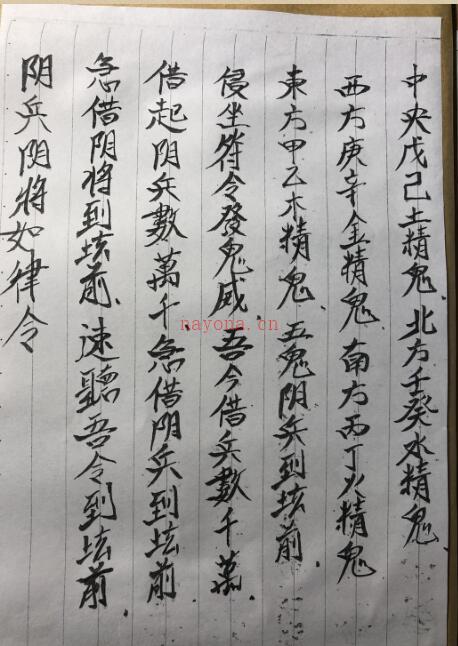 中央戊己土精鬼.北方壬癸水精鬼.
西方庚辛金精鬼.南方丙丁火精鬼
東方甲乙木精鬼.五鬼阴兵到坛前.
侵坐符令發鬼威.吾今借兵數千萬.
借起阴兵數萬千.急借阴兵到坛前
急借阴将到坛前.速聽吾令到坛前.
阴兵阴將如律令
nayona.cn